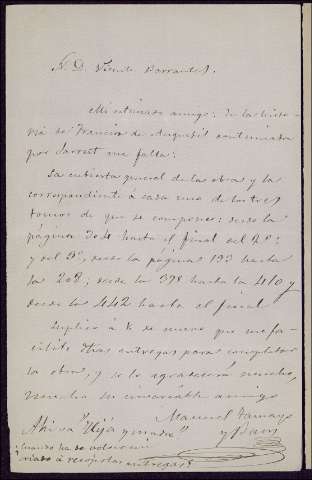 Sr. D. Vicente Barrantes.
Mi estimado amigo: De la histo-
ria de Francisco de Anquetil continuada
por me falta:
La cubierta general de las obras y la
correspondiente a cada uno de los tres
tomos de que se compone: desde la
página 304 hasta el final del 2º:
y del 3º, desde la página 193 hasta
la 208; desde la 398 hasta la 410 y
desde la 442 hasta el final.
Suplico a V. de nuevo que me fa-
cilite otras entregas para completar
la obra, y se lo agradecerá mucho,
mucho su invariable amigo
Manuel Tamayo
y Baus
Ahí va "Hija y madre"
¿Cuándo ha de volver mi
criado a recoger las entregas?